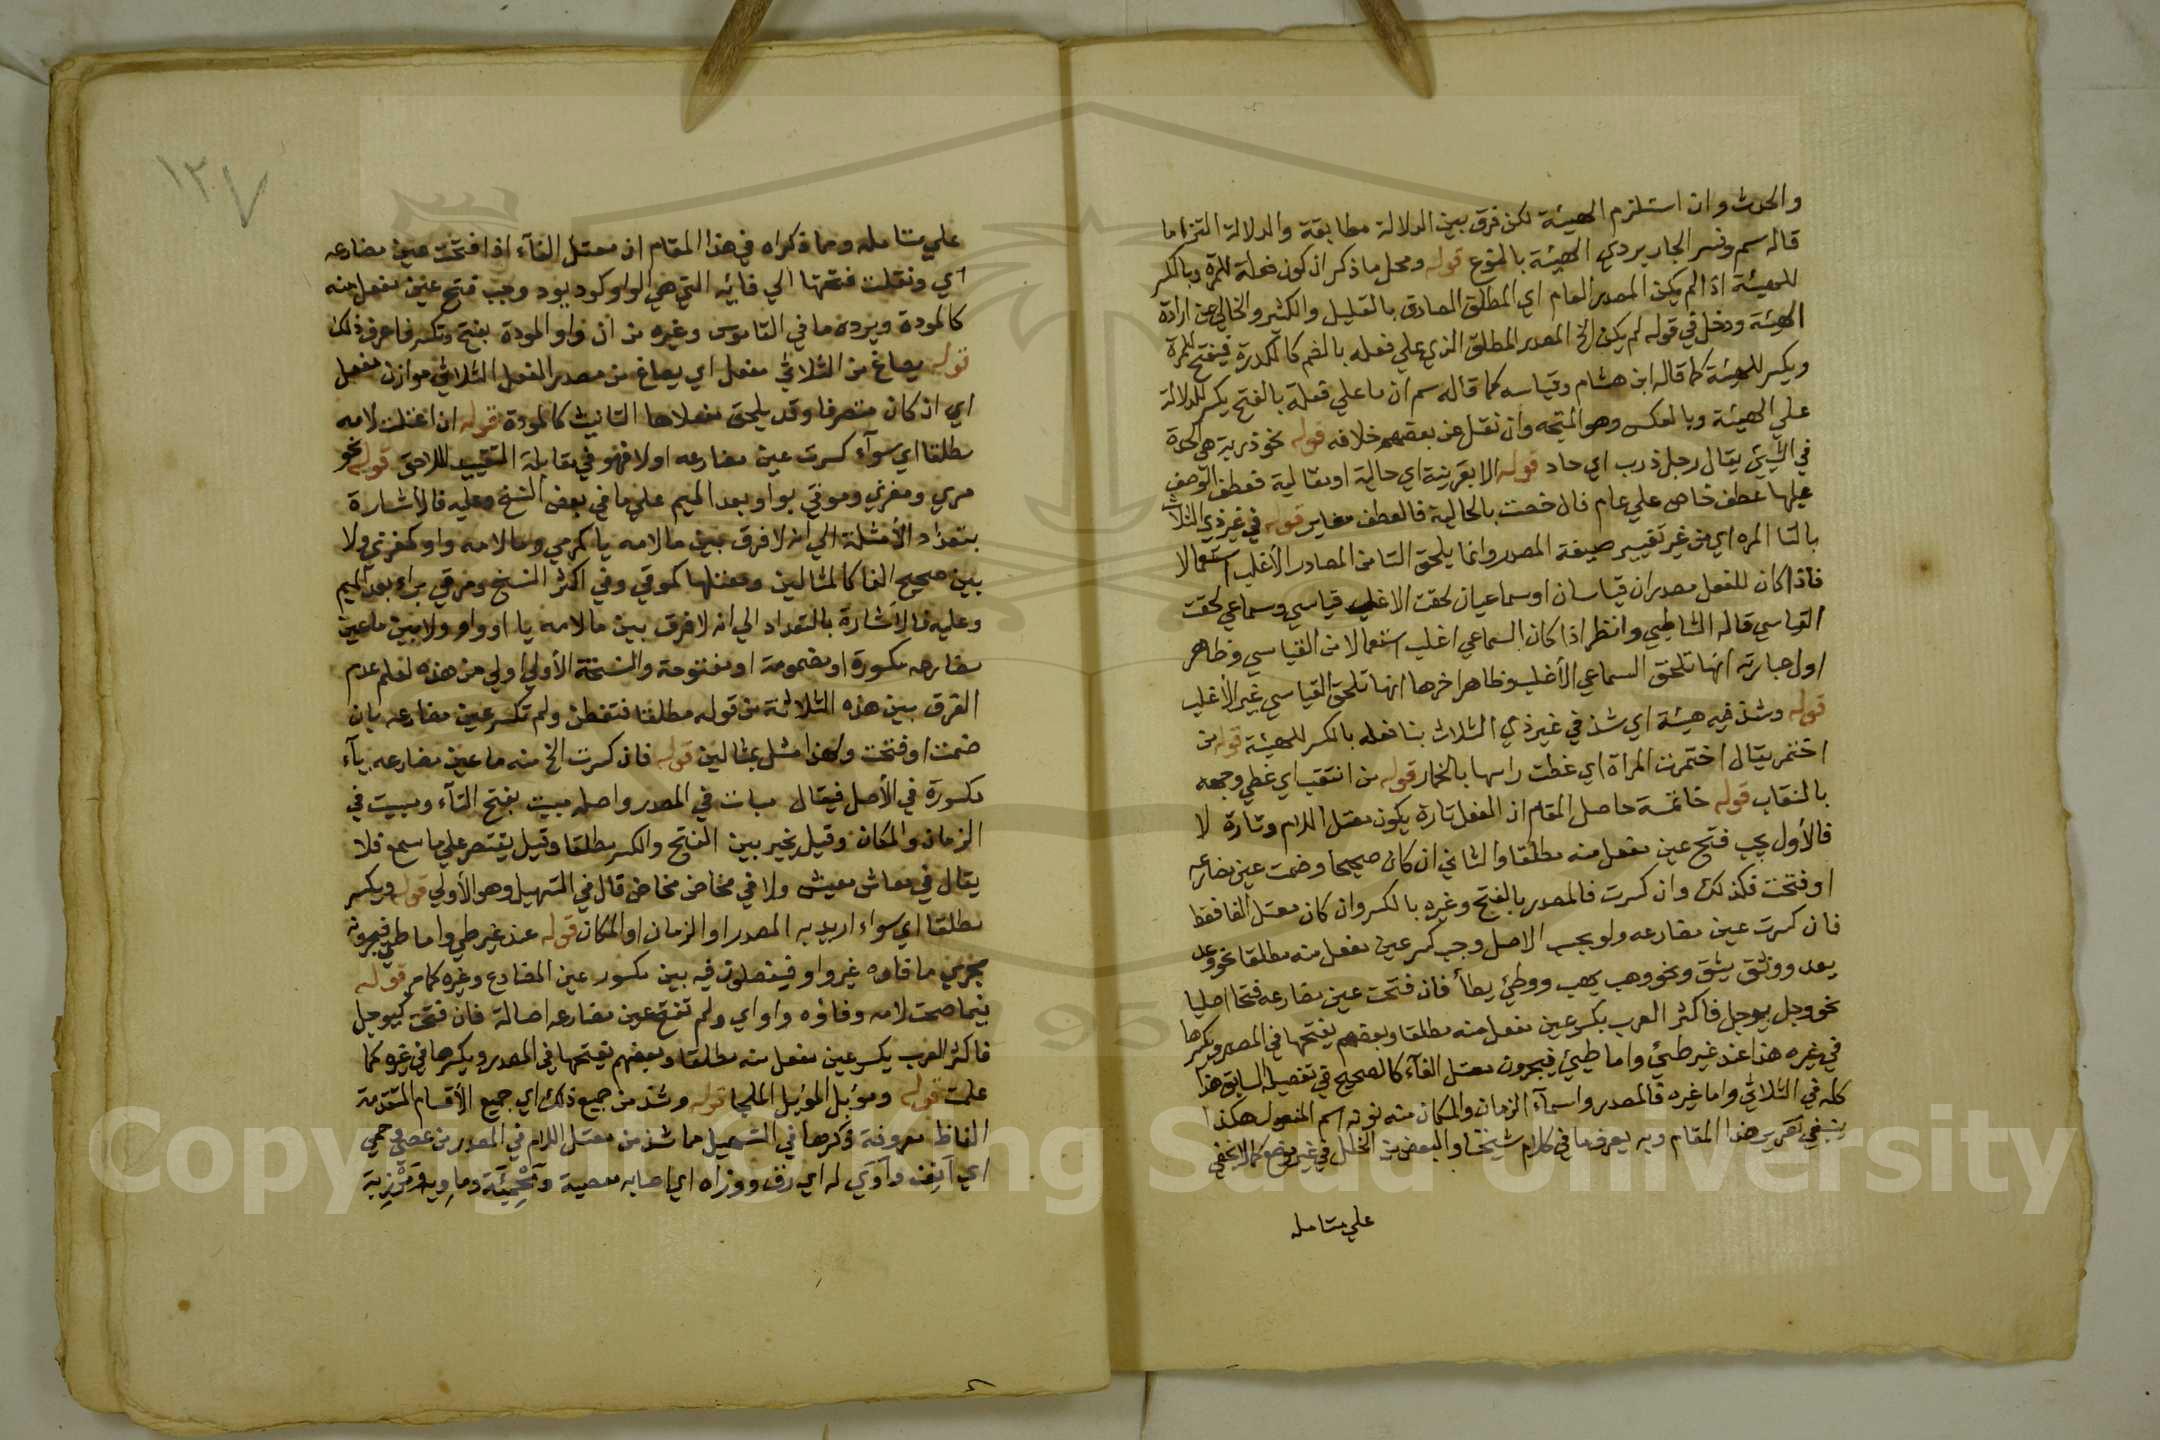 والحدث وان استلزم الهيئة لكن فرق بين الدلالة مطابقة والدلالة التزاما
قاله سم وفسر الجاربردي الهيئة بالنوع قوله ومحل ما ذكر ان كون فعلة للمرة وبالكسر
للهيئة اذا لم يكن المصدر العام اي المطلق الصادق بالقليل والكثير والخالي عن ارادة
الهيئة ودخل في قوله لم يكن الخ المصدر المطلق الذي علي فعله بالضم كالكدرة فيفتح للمرة
ويكسر للهيئة كما قاله ابن هشام وقياسه كما قاله سم ان ما علي فعلة بالفتح يكسر للدلالة
علي الهيئة وبالعكس وهو المتجه وان نقل عن بعضهم خلافه قوله نحو ذربة هي الحدة
في الشيئ يقال رجل ذرب اي حاد قوله الا بقرينة اي حالية او مقالية فعطف الوصف
عليها عطف خاص علي عام فان خصت بالحالية فالعطف مغاير قوله في غير ذي الثلاث
بالتا المره اي من غير تغيير صيغة المصدر وانما يلحق التا من المصادر الأغلب استعمالا
فاذا كان للفعل مصدران قياسان او سماعيان لحقت الاغلب قياسي وسماعي لحقت
القياسي قاله الشاطبي وانظر اذا كان السماعي اغلب استعمالا من القياسي وظاهر
اول عبارته انها تلحق السماعي الأغلب وظاهر اخرها انها تلحق القياسي غير الأغلب
قوله وشذ فيه هيئة اي شذ في غير ذي الثلاث بنا فعله بالكسر للهيئة قوله من
اختمر يقال اختمرت المرأة اي غطت راسها بالخمار قوله من انتقب اي غطي وجهه
بالنقاب قوله خاتمة حاصل المقام ان الفعل تارة يكون معتل اللام وتارة لا
فالأول يجب فتح عين مفعل منه مطلقا والثاني ان كان صحيحا وضمت عين مضارعه
او فتحت فكذلك وان كسرت فالمصدر بالفتح وغيره بالكسر وان كان معتل الفا فقط
فان كسرت عين مضارعه ولو بحسب الاصل وجب كسر عين مفعل منه مطلقا نحو وعد
يعد ووثق يثق ونحو وهب يهب ووطئ يطأ فان فتحت عين مضارعه فتحا اصليا
نحو وجل يوجل فاكثر العرب بكسر عين مفعل منه مطلقا وبعضهم يفتحها في المصدر ويكسرها
في غيره هذا عند غير طيئ واما طيئ فيجرون معتل الفآء كالصحيح في تفصيله السابق هذا
كله في الثلاثي واما غيره فالمصدر واسمآء الزمان والمكان منه بوزنه اسم المفعول هكذا
ينبغي تقرير هذا المقام وبه يعرف ما في كلام شيخنا والبعض من الخلل في غير موضع كما لا يخفي
علي متامله
١٣٧
علي متامله ومما ذكراه في هذا المقام ان معتل الفآء اذا فتحت عين مضارعه
اي ونقلت فتحتها الي فائه التي هي الواو كود يود وجب فتح عين مفعل منه
كالمودة ويرده ما في القاموس وغيره من ان واو المودة بفتح وتكسر فاعرف ذلك
قوله يصاغ من الثلاثي مفعل اي يصاغ من مصدر الفعل الثلاثي موازن مفعل
اي ان كان متصرفا وقد يلحق مفعلا ها التانيث كالمودة قوله ان اعتلت لامه
مطلقا اي سوآء كسرت عين مضارعه اولا فهو في مقابلة التقييد اللاحق قوله نحو
مرمي ومغزي وموقي بواو بعد الميم علي ما في بعض النسخ وعليه فالاشارة
بتعداد الأمثلة الي انه لا فرق بين ما لامه يا كمرمي وما لامه واو كمغزي ولا
بين صحيح الفا كالمثالين ومعتلها كموقي وفي اكثر النسخ ومرقي براء بعد الميم
وعليه فالاشارة بالتعداد الي انه لا فرق بين ما لامه يا او واو ولا بين ما عين
مضارعه مكسورة او مضمومة او مفتوحة والنسخة الأولي اولي من هذه لعلم عدم
الفرق بين هذه الثلاثة من قوله مطلقا فتفطن ولم تكسر عين مضارعه بان
ضمت او فتحت ولهذا مثل بمثالين قوله فان كسرت الخ منه ما عين مضارعه يآء
مكسورة في الأصل فيقال مبات في المصدر واصله مبيت بفتح اليآء ومبيت في
الزمان والمكان وقيل يخير بين الفتح والكسر مطلقا وقيل يقتصر علي ما سمع فلا
يقال في معاش معيش ولا في مخاض مخاض قال في التسهيل وهو الأولي قوله ويكسر
مطلقا اي سواء اريد به المصدر او الزمان او المكان قوله عند غير طي واما طي فيجرونه
مجري ما فاءه غير واو فيفصلون فيه بين مكسور عين المضارع وغيره كما مر قوله
فيما صحت لامه وفاؤه واو اي ولم تفتح عين مضارعه اصالة فان فتحت كيوجل
فاكثر العرب يكسر عين مفعل منه مطلقا وبعضهم يفتحها في المصدر ويكسرها في غيره كما
علمت قوله وموئل الموئل الملجا قوله وشذ من جميع ذلك اي جميع الأقسام المتقدمة
الفاظ معروفة ذكرها في التسهيل مما شذ من معتل اللام في المصدر من عصي وحمي
اي انف واوي له اي رق ورزاه اي اصابه معصية ومحمية وماوية ومرزية